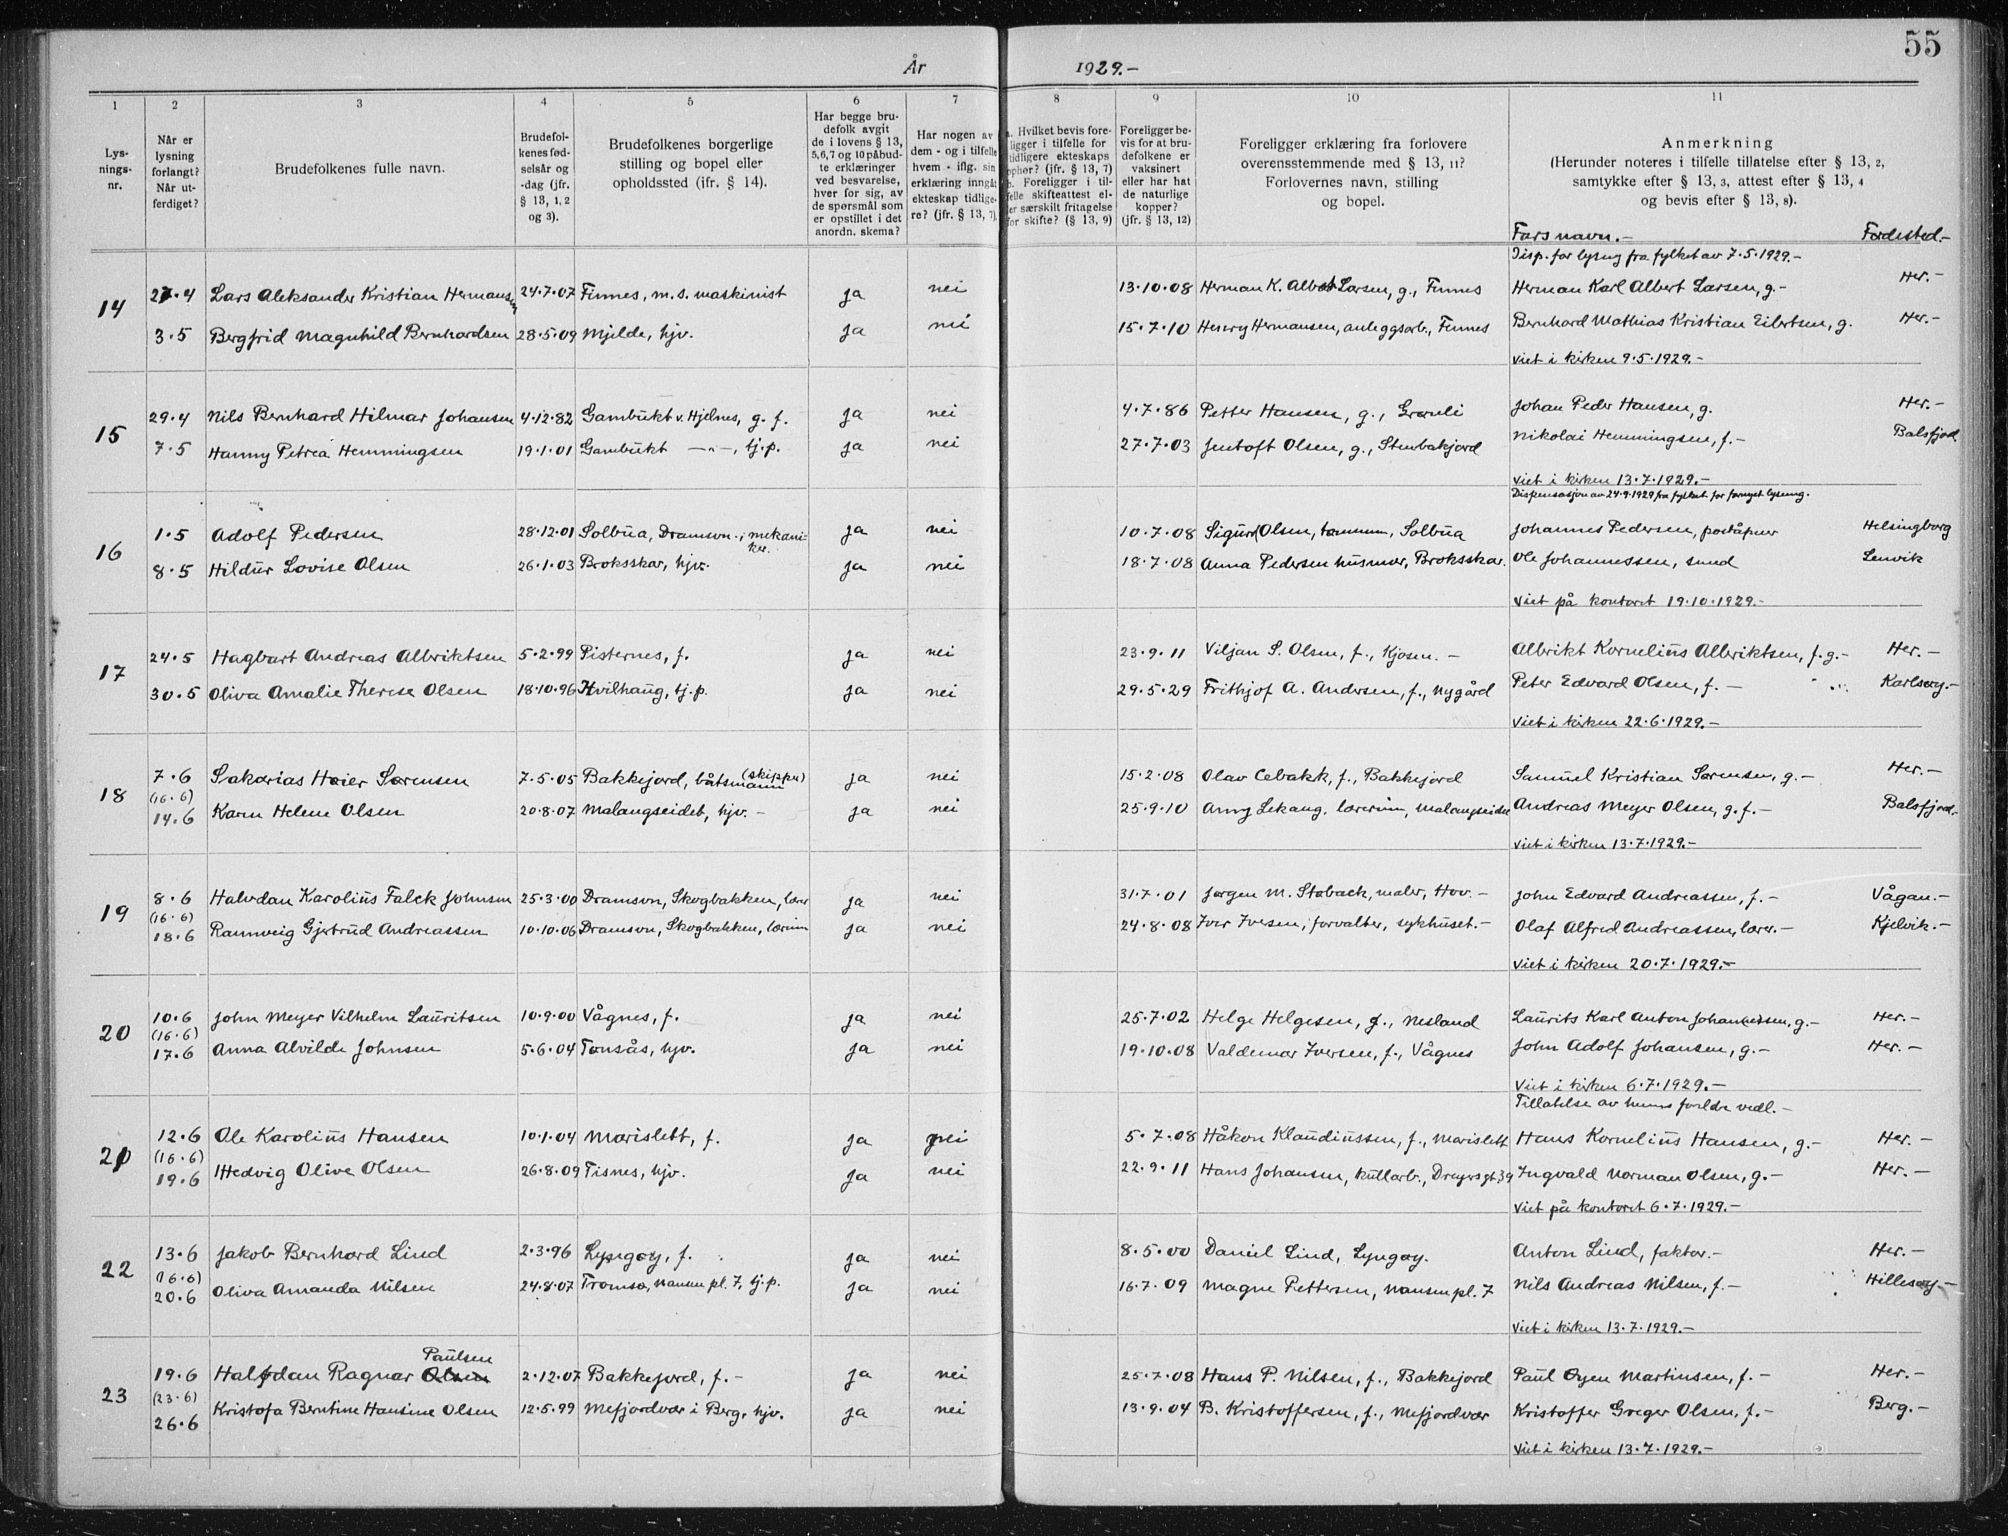 55
År 1929.-
1 2 3 4 5 6 7 8 9 10 11
Lys-
nings-
nr.
Når er
lysning
forlangt?
Når ut-
ferdiget?
Brudefolkenes fulle navn.
Brudefol-
kenes fød-
selsår og
-dag (jfr.
§ 13, 1, 2
og 3).
Brudefolkenes borgerlige
stilling og bopel eller
opholdssted (ifr. § 14).
Har begge bru-
defolk avgit
de i lovens § 13,
5,6,7 og 10 påbud-
te erklæringer
ved besvarelse,
hver for sig, av
de spørsmål som
er opstillet i det
anordn. skema?
Har nogen av
dem - og i tilfelle
hvem - iflg. sin
erklæring inngåt
ekteskap tidlige-
re? (jfr. § 13, 7).
a. Hvilket bevis fore-
ligger i tilfelle for
tidligere ekteskaps
ophør? (jfr. § 13, 7)
b. Foreligger i til-
felle skifteattest el-
ler særskilt fritagelse
for skifte? (§ 13, 9)
Foreligger be-
vis for at bru-
defolkene er
vaksinert
eller har hat
de naturlige
kopper?
(jfr. § 13, 12)
Foreligger erklæring fra forlovere
overensstemmende med § 13, 11?
Forlovernes navn, stilling
og bopel.
Anmerkning
(Herunder noteres i tilfelle tillatelse efter § 13, 2,
samtykke efter § 13, 3, attest efter § 13, 4
og bevis efter § 13, 8).
Fars navn.- Fødested.-
Disp. for lysing fra fylket av 7.5.1929.-
14 27.4 Lars Aleksander Kristian Hermansen 24.7.07 Finnes, m.s. maskinist ja nei 13.10.08 Herman K. Albert Larsen, g., Finnes Herman Karl Albert Larsen, g.- Her.-
3.5 Bergfrid Magnhild Bernhardsen 28.5.09 Mjelde, hjv. ja nei 15.7.10 Henry Hermansen, anleggsarb., Finnes Bernhard Mathias Kristian Eilertsen, g. Her.-
Viet i kirken 9.5.1929.-
15 29.4 Nils Bernhard Hilmar Johansen 4.12.82 Gambukt v. Hjelnes, g. f. ja nei 4.7.86 Petter Hansen, g., Grønli Johan Peder Hansen, g. Her.-
7.5 Hanny Petrea Hemmingsen 19.1.01 Gambukt -"-, tj.p. ja nei 27.7.03 Jentoft Olsen, g., Stenbakjord Nikolai Hemmingsen, f.- Balsfjord
Viet i kirken 13.7.1929.-
Dispensasjon av 24.9.1929 fra fylket for fornyet lysning.
16 1.5 Adolf Pedersen 28.12.01 Solbua, Dramsvn.; mekani-
ker. ja nei 10.7.08 Sigurd Olsen, tømmerm, Solbua Johannes Pedersen, poståpner Helsingborg
8.5 Hildur Lovise Olsen 26.1.03 Broksskar, hjv. ja nei 18.7.08 Anna Pedersen husmor, Broksskar. Ole Johannessen, smed Lenvik
Viet på kontoret 19.10.1929.-
17 24.5 Hagbart Andreas Albriktsen 5.2.99 Pisternes, f. ja nei 23.9.11 Viljan S. Olsen, f., Kjosen.- Albrikt Kornelius Albriktsen, f.g.- Her.-
30.5 Oliva Amalie Therese Olsen 18.10.96 Hvilhaug, tj.p. ja nei 29.5.29 Frithjof A. Andersen, f., Nygård Peter Edvard Olsen, f.- Karlsøy.-
Viet i kirken 22.6.1929.-
18 7.6 Sakarias Høier Sørensen 7.5.05 Bakkejord, båtsmann (skipper) ja nei 15.2.08 Olav Cebakk, f., Bakkejord Samuel Kristian Sørensen, g.- Her.-
(16.6)
14.6 Karen Helene Olsen 20.8.07 Malangseidet, hjv.- ja nei 25.9.10 Anny Lekang, lærerinne, Malangseidet Andreas Meyer Olsen, g.f.- Balsfjord.-
Viet i kirken 13.7.1929.-
19 8.6 Halvdan Karolius Falck Johnsen 25.3.00 Dramsvn, Skogbakken, lærer ja nei 31.7.01 Jørgen M. Støback, maler, Hov.- John Edvard Andreassen, f.- Vågan.-
(16.6)
18.6 Rannveig Gjertrud Andreassen 10.10.06 Dramsvn, Skogbakken, lærerinne ja nei 24.8.08 Iver Iversen, forvalter, sykhuset.- Olaf Alfred Andreassen, lærer.- Kjelvik.-
Viet i kirken 20.7.1929.-
20 10.6 John Meyer Vilhelm Lauritsen 10.9.00 Vågnes, f. ja nei 25.7.02 Helge Helgesen, g., Nesland Laurits Karl Anton Johannesen, g.- Her.-
(16.6)
17.6 Anna Alvilde Johnsen 5.6.04 Tønsås, hjv. ja nei 19.10.08 Valdemar Iversen, f., Vågnes John Adolf Johansen, g.- Her.-
Viet i kirken 6.7.1929.-
Tillatelse av hennes foreldre vedl.-
21 12.6 Ole Karolius Hansen 10.1.04 Marislett, f. ja nei 5.7.08 Håkon Klaudiussen, f., Marislett Hans Kornelius Hansen, g.- Her.-
(16.6)
19.6 Hedvig Olive Olsen 26.8.09 Tisnes, hjv. ja nei 22.9.11 Hans Johansen, kullarb., Dreyersgt.39 Ingvald Norman Olsen, g.- Her.-
Viet på kontoret 6.7.1929.-
22 13.6 Jakob Bernhard Lind 2.3.96 Lyngøy, f. ja nei 8.5.00 Daniel Lind, Lyngøy. Anton Lind, faktor.- Her.-
(16.6)
20.6 Oliva Amanda Nilsen 24.8.07 Tromsø, Nansen pl. 7, tj.p. ja nei 16.7.09 Magne Pettersen, Nansen pl. 7 Nils Andreas Nilsen, f.- Hillesøy.-
Viet i kirken 13.7.1929.-
Paulsen
23 19.6 Halfdan Ragnar Olsen 2.12.07 Bakkejord, f.- ja nei 25.7.08 Hans P. Nilsen, f., Bakkejord Paul Øyen Martinsen, f.- Her.-
(23.6)
26.6 Kristofa Berntine Hansine Olsen 12.5.99 Mefjordvær i Berg, hjv. ja nei 13.9.04 B. Kristoffersen, f., Mefjordvær Kristoffer Greger Olsen, f.- Berg.-
Viet i kirken 13.7.1929.-